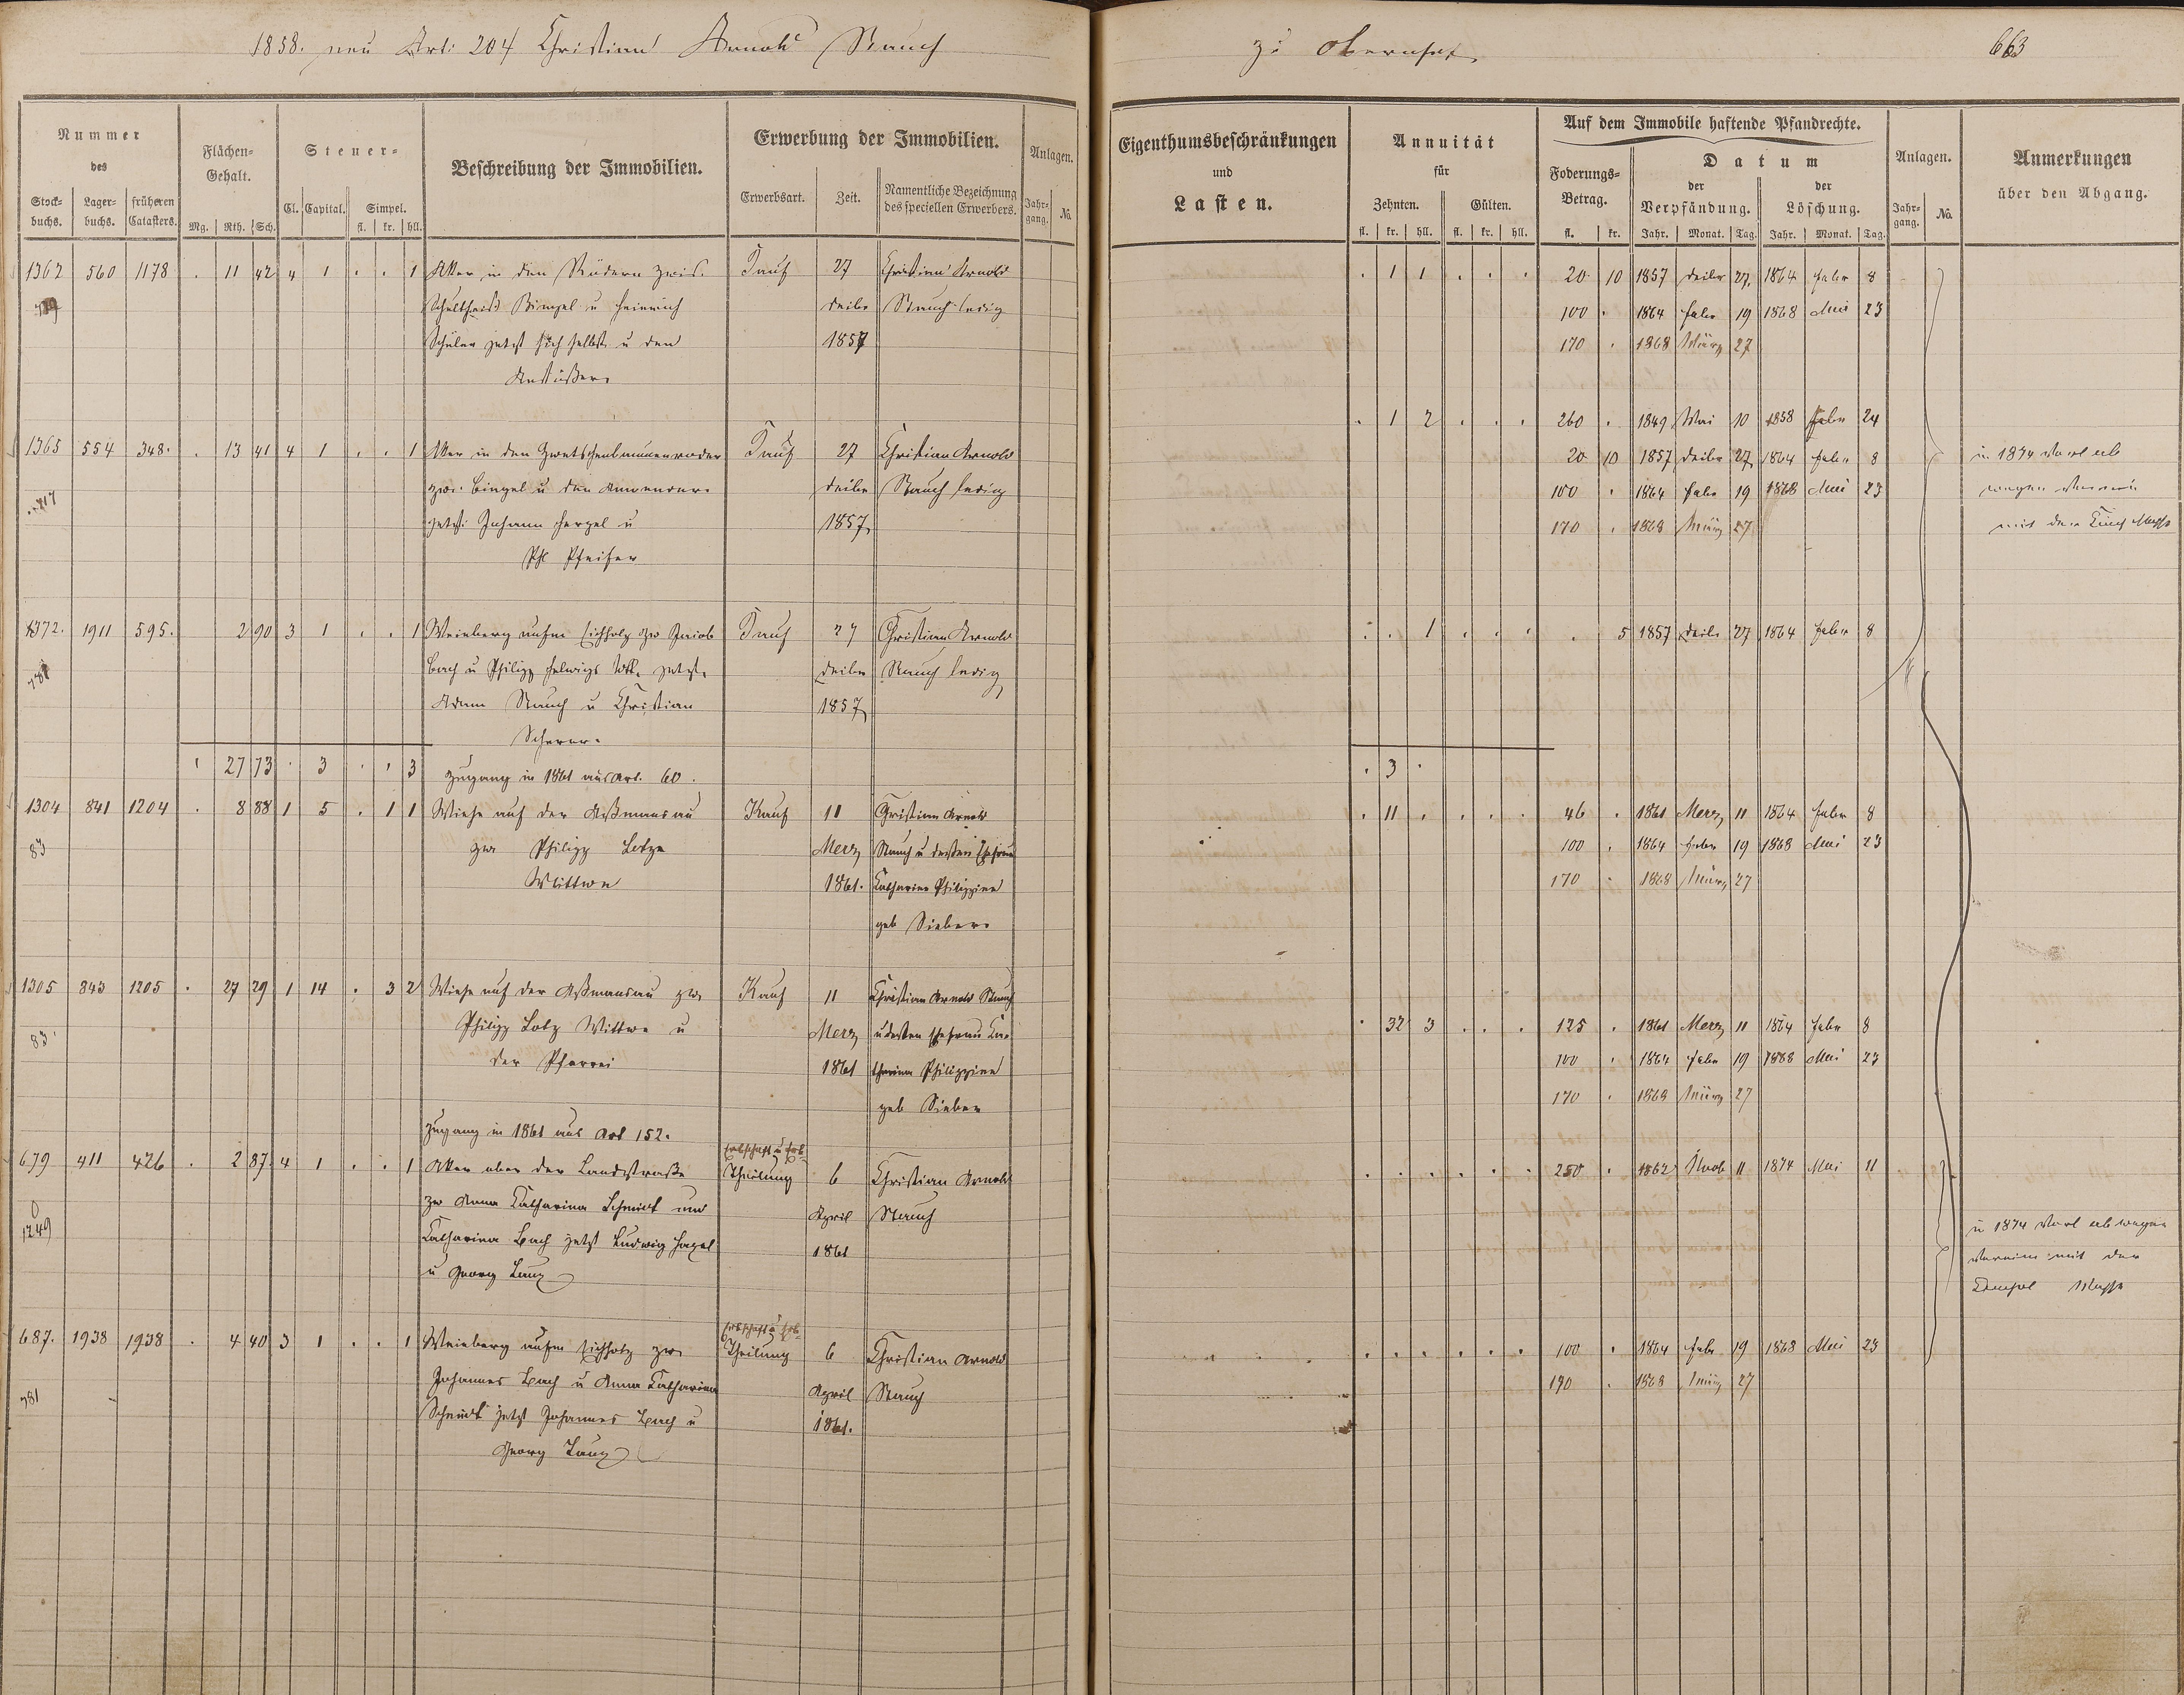 1858. neu Art. 204 Christian Arnold Stauch
zu Obernhof
663
Nummer des
Stockbuchs. Lagerbuchs. früheren Catasters.
Flächen-Gehalt.
Mg. Rth. Sch.
Steuer-
Cl. Capital. Simpel.
fl. kr. hll.
Beschreibung der Immobilien.
Erwerbung der Immobilien.
Erwerbsart. Zeit. Namentliche Bezeichnung des speciellen Erwerbers.
Anlagen.
Jahrgang. No.
Eigenthumsbeschränkungen
und
Lasten.
Annuität
für
Zehnten. Gülten.
fl. kr. hll. fl. kr. hll.
Auf dem Immobile haftende Pfandrechte.
Foderungs-Betrag.
fl. kr.
Datum
der Verpfändung. der Löschung.
Jahr. Monat. Tag. Jahr. Monat. Tag.
Anlagen.
Jahrgang. No.
Anmerkungen
über den Abgang.
1362 560 1178 . 11 42 4 1 . . 1 Acker in den Rödern zwis. Tausch 27 Christian Arnold . 1 1 . . . 20 10 1857 Dezbr 27 1864 Febr 8
Schultheis Bingel u Heinrich Dezbr Stauch ledig 100 . 1864 Febr 19 1868 Mai 23
Schüler jetzt sich selbst u den 1857 170 . 1868 März 27
Anstößern
. 1 2 . . . 260 . 1849 Mai 10 1858 Febr 24
1365 554 348. . 13 41 4 1 . . 1 Acker in den Tausch 27 Christian Arnold 20 10 1857 Dezbr 27 1864 Febr 8 in 1874
717 zw. Bingel u den Anwender Dezbr Stauch ledig 100 . 1864 Febr 19 1868 Mai 23 wegen
jetzt Johann u 1857 170 . 1868 März 27 mit der
Phl Pfeifer
1372. 1911 595. . 2 90 3 1 . . 1 Weinberg aufm Eichholz zw Jacob Tausch 27 Christian Arnold . . 1 . . . . 5 1857 Dezbr 27 1864 Febr 8
781 Bach u Philipp Helwigs Wtt. jetzt Dezbr Stauch ledig
Adam Stauch u Christian 1857
Scherer
. 27 73 . 3 . . 3 . 3 .
Zugang in 1861 aus Art. 60.
1304 841 1204 . 8 88 1 5 . 1 1 Wiese auf der Aßmansau Kauf 11 Christian Arnold . 11 . . . . 46 . 1861 Merz 11 1864 Febr 8
83 zw Philipp Lotze Merz Stauch u dessen Ehefrau 100 . 1864 Febr 19 1868 Mai 23
Wittwe 1861. Katharina Philippine 170 . 1868 März 27
geb Sieber
1305 843 1205 . 27 29 1 14 . 3 2 Wiese auf der Aßmansau zw Kauf 11 Christian Arnold Stauch
83 Philipp Lotz Wittwe u Merz u dessen Ehefrau Ka- . 32 3 . . . 125 . 1861 Merz 11 1864 Febr 8
der Pfarrei 1861 tharina Philippine 100 . 1864 Febr 19 1868 Mai 23
geb Sieber 170 . 1868 März 27
Zugang in 1861 aus Art 152.
679 411 426 . 2 87 4 1 . . 1 Acker ober der Landstraße Erbschaft u Erb-Theilung 6 Christian Arnold . . . . . . 250 . 1862 Novb 11 1874 Mai 11
1249 zw Anna Katharina Schmidt und April Stauch in 1874
Katharina Bach jetzt Ludwig Hasel 1861 mit der
u Georg Lanz
687. 1938 1938 . 4 40 3 1 . . 1 Weinberg aufm Eichholz zw Erbschaft u Erb-Theilung 6 Christian Arnold . . . . . . 100 . 1864 Febr 19 1868 Mai 23
781 Johannes Bach u Anna Katharina April Stauch 170 . 1868 März 27
Schmidt jetzt Johannes Bach u 1861.
Georg Lanz